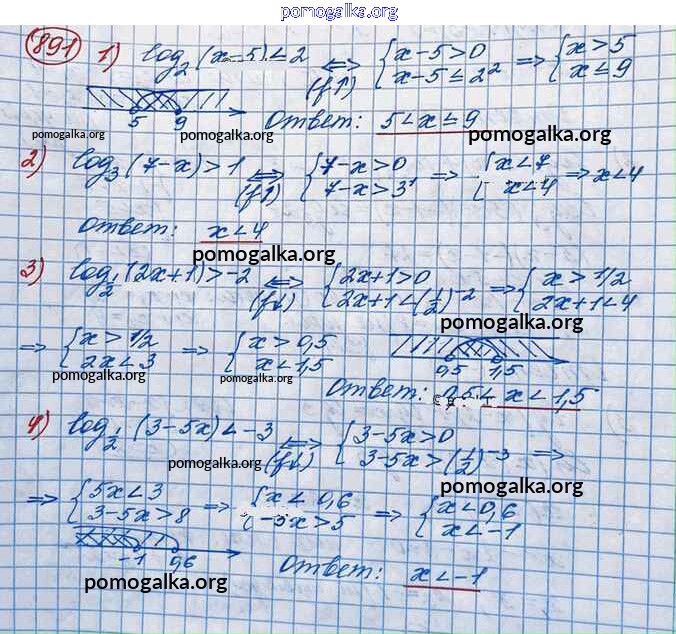 pomogalka.org
891 1) log₂(x-5) ≤ 2 ⇔ (f↑) { x-5>0 x-5≤2² ⇒ { x>5 x≤9
5 9 Ответ: 5<x≤9
pomogalka.org pomogalka.org pomogalka.org
2) log₃(7-x)>1 ⇔ (f↑) { 7-x>0 7-x>3¹ ⇒ { x<7 x<4 ⇒ x<4
Ответ: x<4
pomogalka.org
3) log½(2x+1)>-2 ⇔ (f↓) { 2x+1>0 2x+1<(1/2)⁻² ⇒ { x>1/2 2x+1<4
pomogalka.org
⇒ { x>1/2 2x<3 ⇒ { x>0,5 x<1,5 0,5 1,5
pomogalka.org pomogalka.org
Ответ: 0,5<x<1,5
4) log½(3-5x)<-3 ⇔ (f↓) { 3-5x>0 3-5x>(1/2)⁻³ ⇒
pomogalka.org pomogalka.org
⇒ { 5x<3 3-5x>8 ⇒ { x<0,6 -5x>5 ⇒ { x<0,6 x<-1
-1 0,6 Ответ: x<-1
pomogalka.org